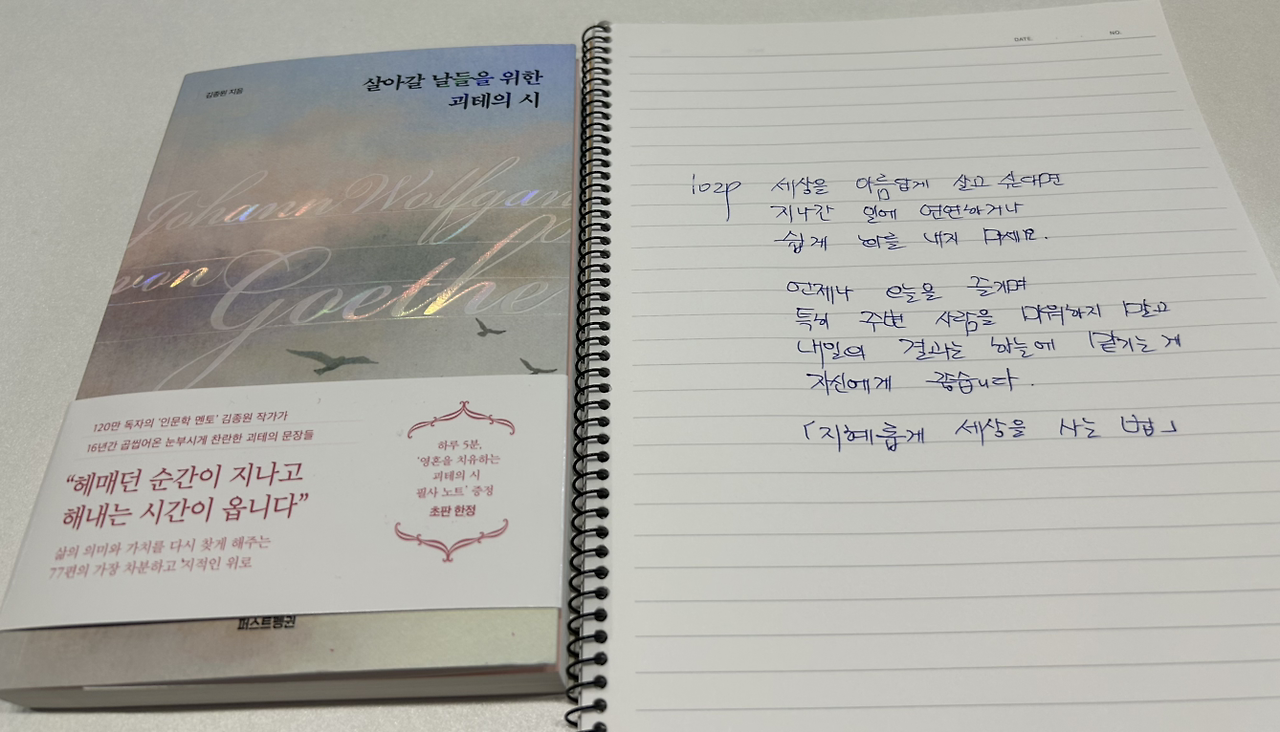 김종원 지음
살아갈 날들을 위한
괴테의 시
Johann Wolfgang
von Goethe
120만 독자의 '인문학 멘토' 김종원 작가가
16년간 곱씹어온 눈부시게 찬란한 괴테의 문장들
“헤매던 순간이 지나고
해내는 시간이 옵니다”
삶의 의미와 가치를 다시 찾게 해주는
77편의 가장 차분하고 지적인 위로
하루 5분,
'영혼을 치유하는
괴테의 시
필사 노트' 증정
초판 한정
퍼스트펭귄
DATE.
NO.
102p 세상을 아름답게 살고 싶다면
지나간 일에 연연하거나
쉽게 화를 내지 마세요.
언제나 오늘을 즐기며
특히 주변 사람을 미워하지 말고
내일의 결과는 하늘에 맡기는 게
자신에게 좋습니다.
「지혜롭게 세상을 사는 법」